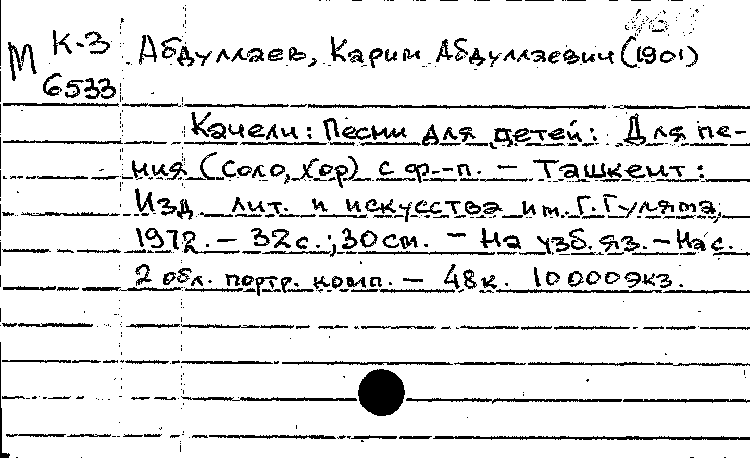 М К-3 Абдуллаев, Карим Абдуллаевич (1901)
6533
Качели: Песни для детей: Для пе-
ния (соло, хор) с ф.-п. — Ташкент:
Изд. лит. и искусства им. Г. Гуляма,
1972. — 32 с.; 30 см. — На узб. яз. — На с.
2 обл. портр. комп. — 48 к. 10000 экз.